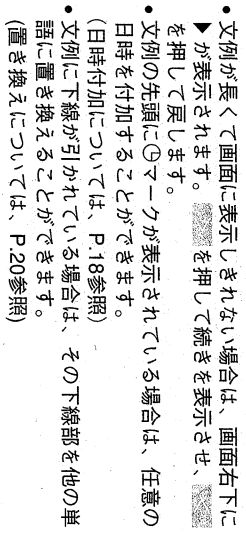 • 文例が長くて画面に表示しきれない場合は、画面右下に
▼が表示されます。 を押して続きを表示させ、
を押して戻します。
• 文例の先頭に🕒マークが表示されている場合は、任意の
日時を付加することができます。
(日時付加については、P.18参照)
• 文例に下線が引かれている場合は、その下線部を他の単
語に置き換えることができます。
(置き換えについては、P.20参照)